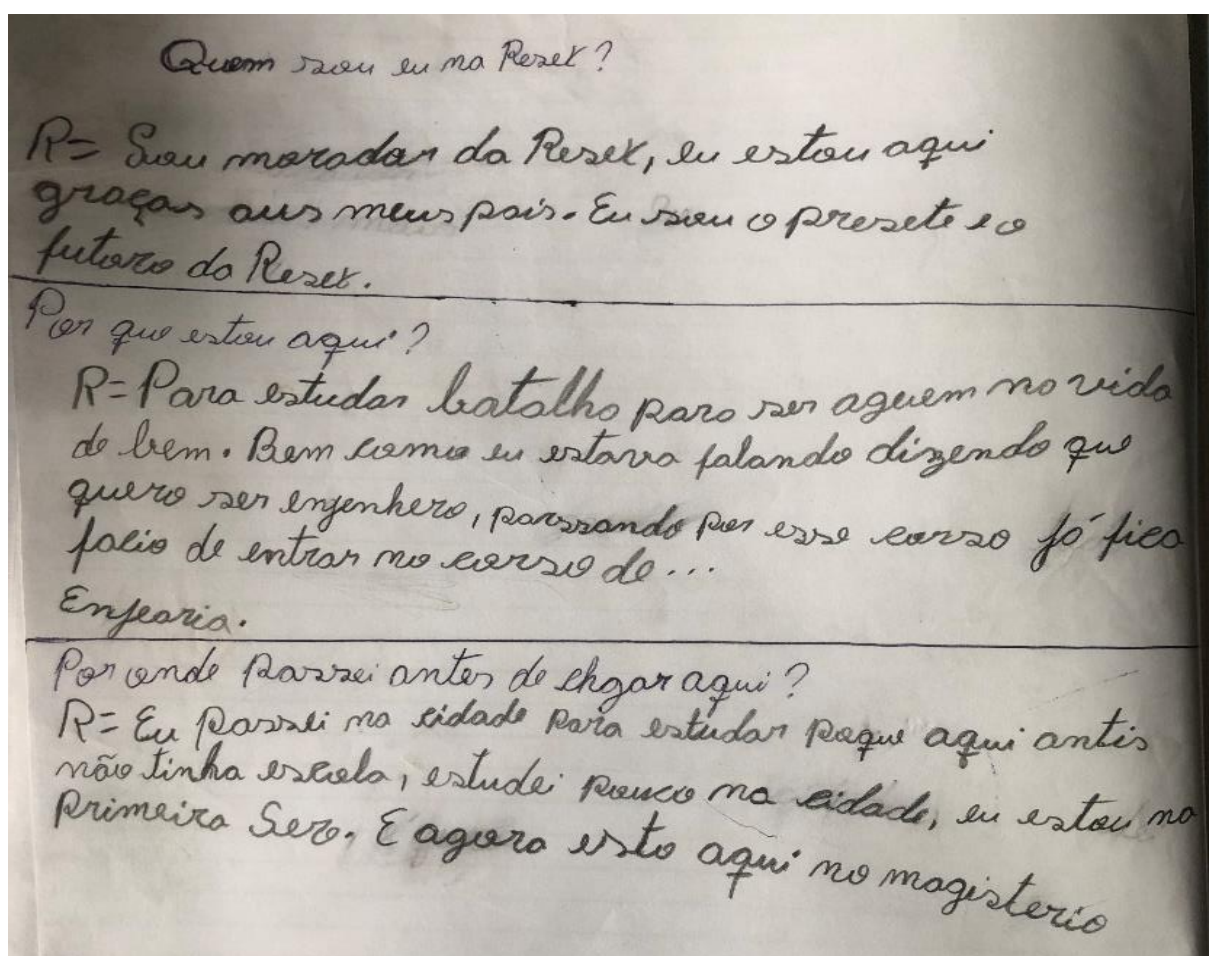 Quem sou eu na Resex?
R= Sou morador da Resex, eu estou aqui
graças aus meus pais. Eu sou o presete e o
futuro da Resex.
Por que estou aqui?
R= Para estudar batalho para ser aguem na vida
de bem. Bem como eu estava falando dizendo que
quero ser enjenhero, parssando por esse curso já fica
facio de entrar no curso de...
Enjearia.
Por onde passei antes de chgar aqui?
R= Eu passei na cidade para estudar paque aqui antis
não tinha escola, estudei pouco na cidade, eu estou na
primeira Sero. E agora esto aqui no magisterio